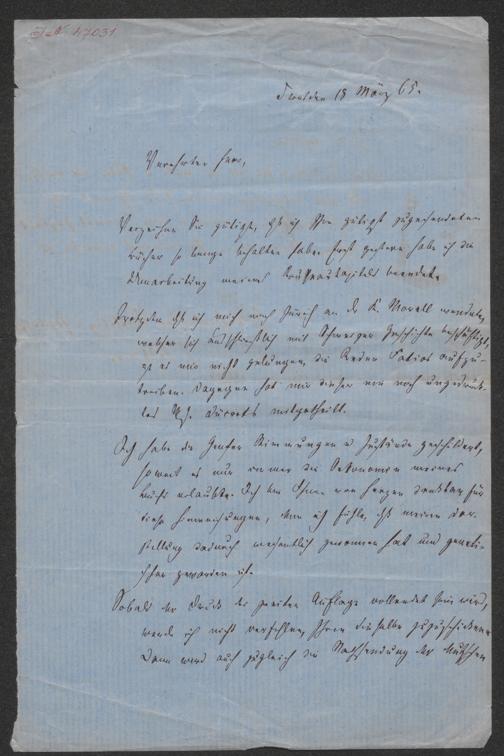 J.N. 47031
Dresden 18 März 65.
Verehrter Herr,
Verzeihen Sie gütigst, daß ich Ihre gütigst zugesendeten
Bücher so lange behalten habe. Erst gestern habe ich die
Umarbeitung meines Rousseaukapitels beendet.
Trotzdem daß ich mich nach Zürich an Dr K. Morell wendete,
welcher sich ausschließlich mit Schweizer Geschichte beschäftigt,
ist es mir nicht gelungen, die Reden Fatios aufzu-
treiben. Dagegen hat mir dieser ein noch ungedruck-
tes mitgetheilt.
Ich habe die Genfer Stimmungen u Zustände geschildert,
soweit es nur immer die Oekonomie meines
Buchs erlaubte. Ich bin Ihnen von Herzen dankbar für
diese Hinweisungen, denn ich fühle, daß meine Dar-
stellung dadurch wesentlich gewonnen hat und geneti-
scher geworden ist.
Sobald der Druck der zweiten Auflage vollendet sein wird,
werde ich nicht verfehlen, Ihnen dieselbe zuzuschicken.
Dann wird auch zugleich die Nachsendung der